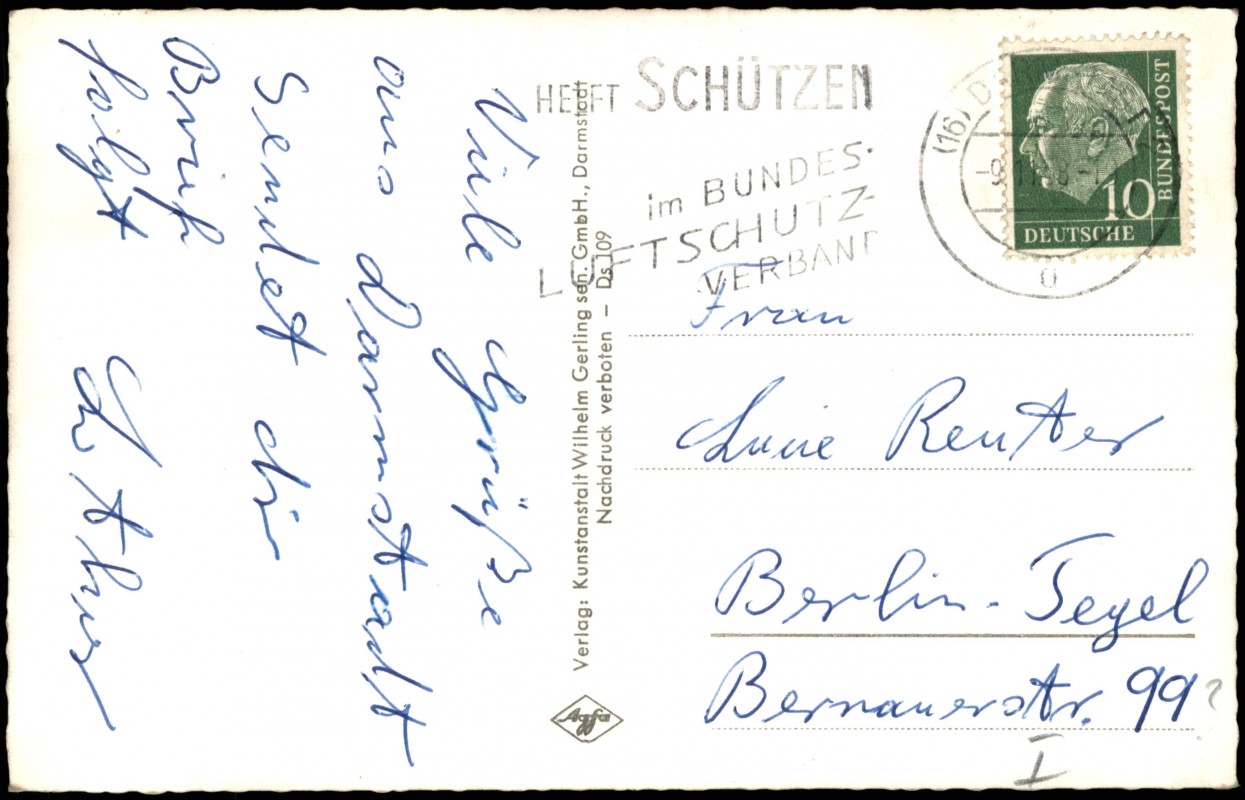 Viele Grüße
aus Darmstadt
Sendet dir
Brief
folgt
Arthur
Verlag: Kunstanstalt Wilhelm Gerling sen. GmbH., Darmstadt
Nachdruck verboten – Ds 109
Agfa
HELFT SCHÜTZEN
im BUNDES-
LUFTSCHUTZ-
VERBAND
(16) D
u
10
BUNDESPOST
DEUTSCHE
Frau
Lucie Reutter
Berlin-Tegel
Bernauerstr. 99?
I